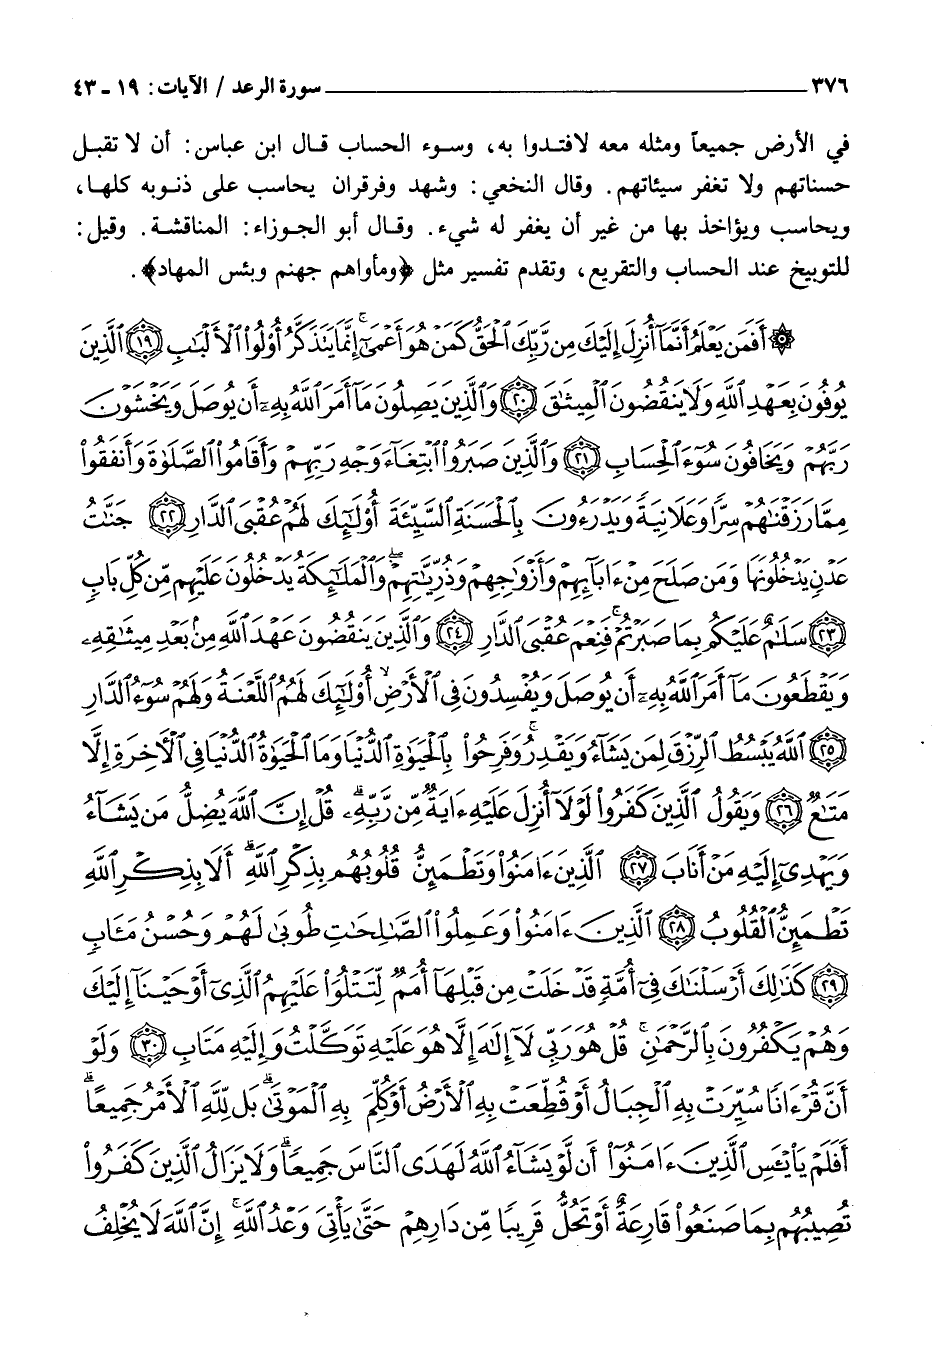 ٣٧٦ سورة الرعد / الآيات: ١٩ - ٤٣
في الأرض جميعاً ومثله معه لافتدوا به، وسوء الحساب قال ابن عباس: أن لا تقبل
حسناتهم ولا تغفر سيئاتهم. وقال النخعي: وشهد وفرقران يحاسب على ذنوبه كلها،
ويحاسب ويؤاخذ بها من غير أن يغفر له شيء. وقال أبو الجوزاء: المناقشة. وقيل:
للتوبيخ عند الحساب والتقريع، وتقدم تفسير مثل ﴿ومأواهم جهنم وبئس المهاد﴾.
۞ أَفَمَن يَعْلَمُ أَنَّمَآ أُنزِلَ إِلَيْكَ مِن رَّبِّكَ ٱلْحَقُّ كَمَنْ هُوَ أَعْمَىٰٓ ۚ إِنَّمَا يَتَذَكَّرُ أُو۟لُوا۟ ٱلْأَلْبَٰبِ ﴿١٩﴾ ٱلَّذِينَ
يُوفُونَ بِعَهْدِ ٱللَّهِ وَلَا يَنقُضُونَ ٱلْمِيثَٰقَ ﴿٢٠﴾ وَٱلَّذِينَ يَصِلُونَ مَآ أَمَرَ ٱللَّهُ بِهِۦٓ أَن يُوصَلَ وَيَخْشَوْنَ
رَبَّهُمْ وَيَخَافُونَ سُوٓءَ ٱلْحِسَابِ ﴿٢١﴾ وَٱلَّذِينَ صَبَرُوا۟ ٱبْتِغَآءَ وَجْهِ رَبِّهِمْ وَأَقَامُوا۟ ٱلصَّلَوٰةَ وَأَنفَقُوا۟
مِمَّا رَزَقْنَٰهُمْ سِرًّا وَعَلَانِيَةً وَيَدْرَءُونَ بِٱلْحَسَنَةِ ٱلسَّيِّئَةَ أُو۟لَٰٓئِكَ لَهُمْ عُقْبَى ٱلدَّارِ ﴿٢٢﴾ جَنَّٰتُ
عَدْنٍ يَدْخُلُونَهَا وَمَن صَلَحَ مِنْ ءَابَآئِهِمْ وَأَزْوَٰجِهِمْ وَذُرِّيَّٰتِهِمْ ۖ وَٱلْمَلَٰٓئِكَةُ يَدْخُلُونَ عَلَيْهِم مِّن كُلِّ بَابٍ
﴿٢٣﴾ سَلَٰمٌ عَلَيْكُم بِمَا صَبَرْتُمْ ۚ فَنِعْمَ عُقْبَى ٱلدَّارِ ﴿٢٤﴾ وَٱلَّذِينَ يَنقُضُونَ عَهْدَ ٱللَّهِ مِنۢ بَعْدِ مِيثَٰقِهِۦ
وَيَقْطَعُونَ مَآ أَمَرَ ٱللَّهُ بِهِۦٓ أَن يُوصَلَ وَيُفْسِدُونَ فِى ٱلْأَرْضِ ۙ أُو۟لَٰٓئِكَ لَهُمُ ٱللَّعْنَةُ وَلَهُمْ سُوٓءُ ٱلدَّارِ
﴿٢٥﴾ ٱللَّهُ يَبْسُطُ ٱلرِّزْقَ لِمَن يَشَآءُ وَيَقْدِرُ ۚ وَفَرِحُوا۟ بِٱلْحَيَوٰةِ ٱلدُّنْيَا وَمَا ٱلْحَيَوٰةُ ٱلدُّنْيَا فِى ٱلْءَاخِرَةِ إِلَّا
مَتَٰعٌ ﴿٢٦﴾ وَيَقُولُ ٱلَّذِينَ كَفَرُوا۟ لَوْلَآ أُنزِلَ عَلَيْهِ ءَايَةٌ مِّن رَّبِّهِۦ ۗ قُلْ إِنَّ ٱللَّهَ يُضِلُّ مَن يَشَآءُ
وَيَهْدِىٓ إِلَيْهِ مَنْ أَنَابَ ﴿٢٧﴾ ٱلَّذِينَ ءَامَنُوا۟ وَتَطْمَئِنُّ قُلُوبُهُم بِذِكْرِ ٱللَّهِ ۗ أَلَا بِذِكْرِ ٱللَّهِ
تَطْمَئِنُّ ٱلْقُلُوبُ ﴿٢٨﴾ ٱلَّذِينَ ءَامَنُوا۟ وَعَمِلُوا۟ ٱلصَّٰلِحَٰتِ طُوبَىٰ لَهُمْ وَحُسْنُ مَـَٔابٍ
﴿٢٩﴾ كَذَٰلِكَ أَرْسَلْنَٰكَ فِىٓ أُمَّةٍ قَدْ خَلَتْ مِن قَبْلِهَآ أُمَمٌ لِّتَتْلُوَا۟ عَلَيْهِمُ ٱلَّذِىٓ أَوْحَيْنَآ إِلَيْكَ
وَهُمْ يَكْفُرُونَ بِٱلرَّحْمَٰنِ ۚ قُلْ هُوَ رَبِّى لَآ إِلَٰهَ إِلَّا هُوَ عَلَيْهِ تَوَكَّلْتُ وَإِلَيْهِ مَتَابِ ﴿٣٠﴾ وَلَوْ
أَنَّ قُرْءَانًا سُيِّرَتْ بِهِ ٱلْجِبَالُ أَوْ قُطِّعَتْ بِهِ ٱلْأَرْضُ أَوْ كُلِّمَ بِهِ ٱلْمَوْتَىٰ ۗ بَل لِّلَّهِ ٱلْأَمْرُ جَمِيعًا ۗ
أَفَلَمْ يَا۟يْـَٔسِ ٱلَّذِينَ ءَامَنُوٓا۟ أَن لَّوْ يَشَآءُ ٱللَّهُ لَهَدَى ٱلنَّاسَ جَمِيعًا ۗ وَلَا يَزَالُ ٱلَّذِينَ كَفَرُوا۟
تُصِيبُهُم بِمَا صَنَعُوا۟ قَارِعَةٌ أَوْ تَحُلُّ قَرِيبًا مِّن دَارِهِمْ حَتَّىٰ يَأْتِىَ وَعْدُ ٱللَّهِ ۚ إِنَّ ٱللَّهَ لَا يُخْلِفُ